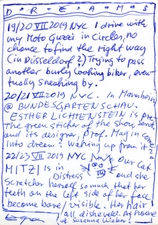 D-R-E-A-M-S
19/20 VII 2019 NYC I drive with
my Moto Guzzi in Circles, no
chance to find the right way
(in Düsseldorf?) Trying to pass
another burly looking biker, even
tually sneaking by.
20/21 VII 2019 NYC. In Mannheim
@ BUNDESGARTENSCHAU.
ESTHER LICHTENSTEIN is per
the green sticker of the show, and
its design. Prof. May in cong
into dream? Waking up from it
22/23 VII 2019 NYC Our cat
MITZI is in distress and she
scratches herself so much that her
teeth on the left side of her face
become bare/visible. Her hair
all dishevelled.